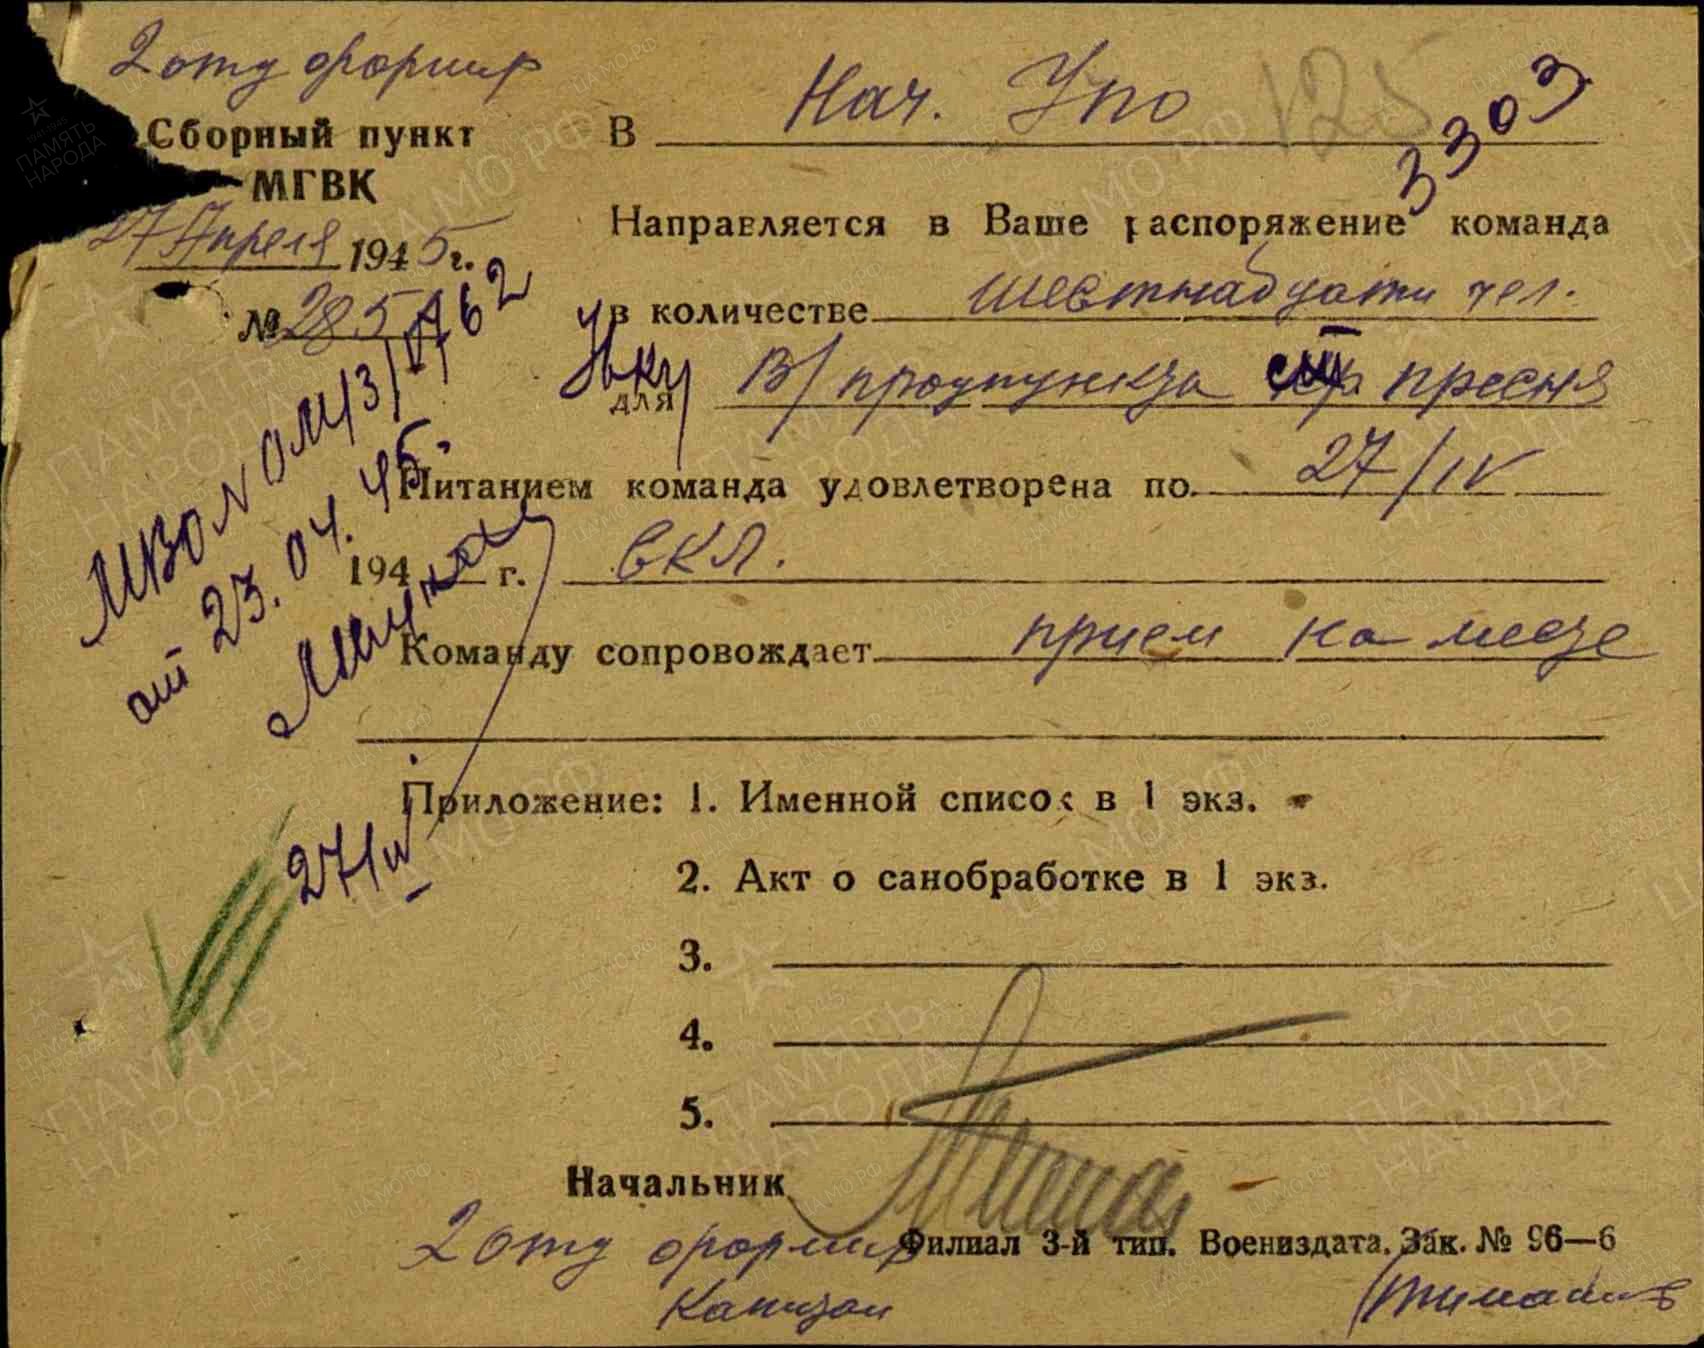 2 отд формир
Сборный пункт
МГВК
27 Апреля 1945 г.
№ 285
В Нач. Упо
125
3303
Направляется в Ваше распоряжение команда
в количестве шестнадцати чел.
для В/продпункта пресня
Питанием команда удовлетворена по 27/IV
194 г. вкл.
МВО N ОМ/3/
762
от 23.04.45.
Команду сопровождает прием на месте
Приложение: 1. Именной список в 1 экз.
27/IV
2. Акт о санобработке в 1 экз.
3.
4.
5.
Начальник
2 отд формир
Филиал 3-й тип. Воениздата. Зак. № 96—6
Капитан